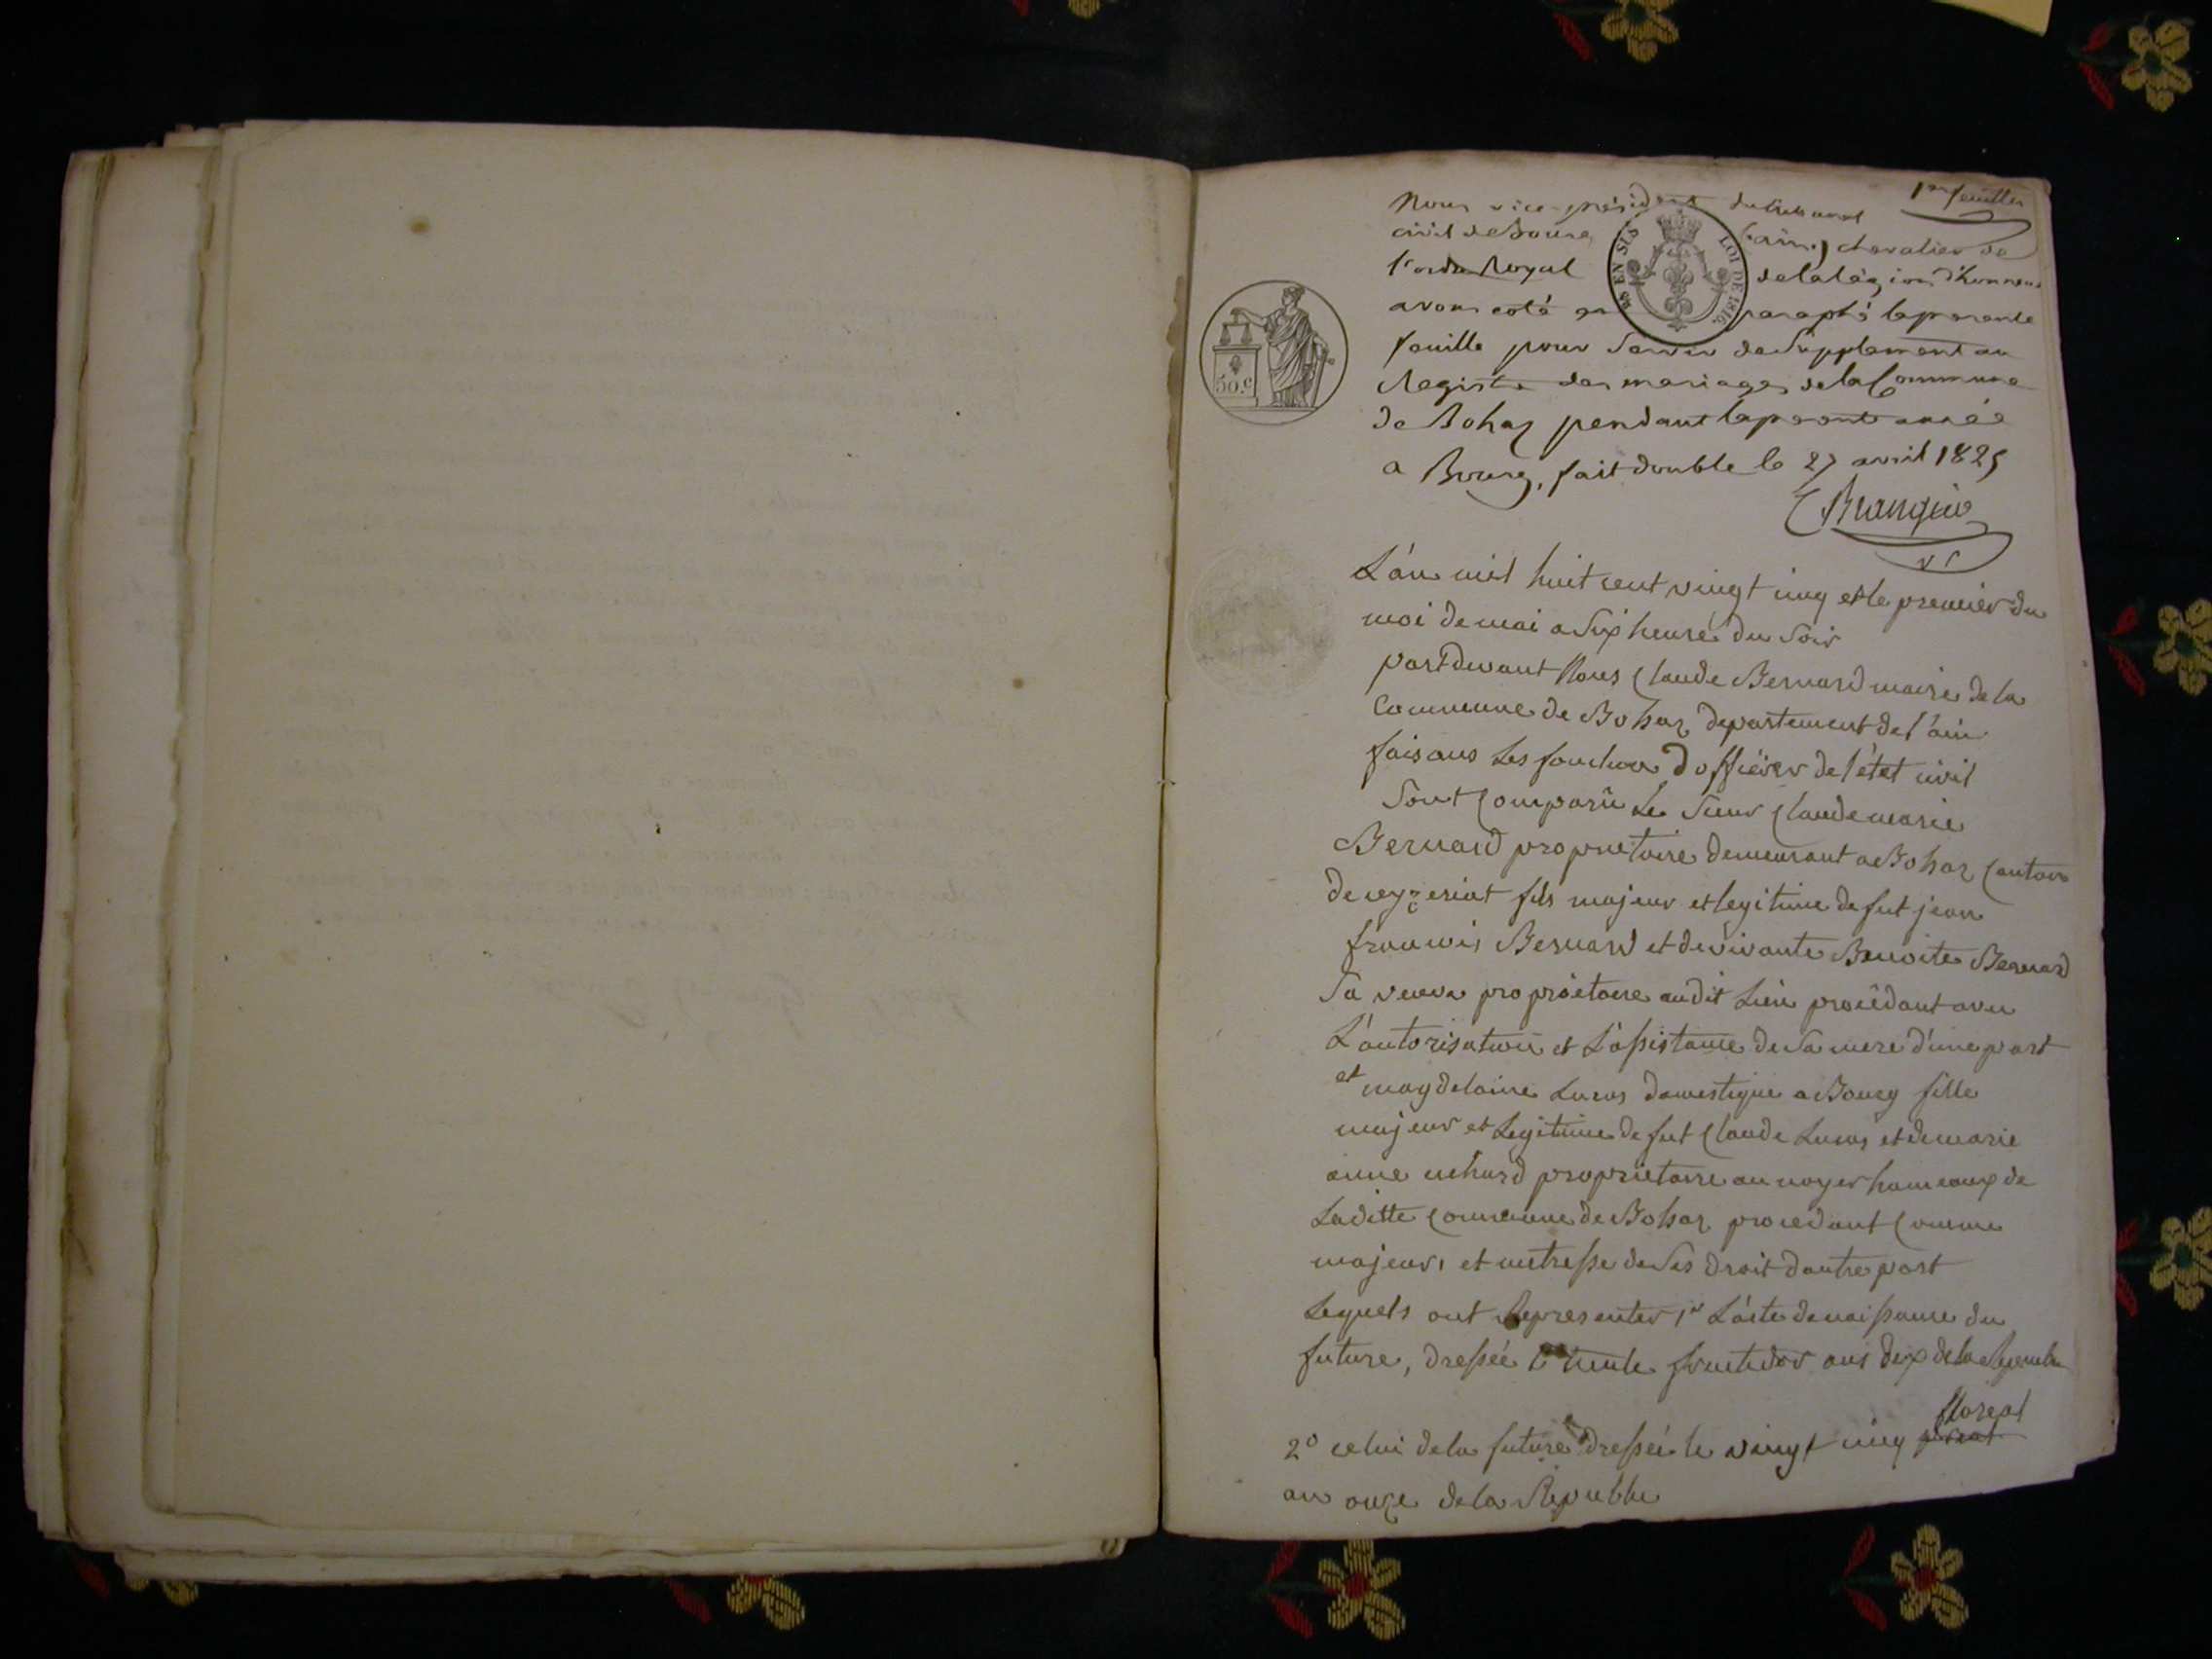 1er feuillet
Nous vice-président du tribunal
civil de Bourg (ain) chevalier de
l'ordre Royal de la légion d'honneur
avons coté et paraphé la presente
feuille pour Servir de Supplement au
Registre des mariages de la Commune
de Bohaz pendant la pres.nte année
a Bourg, fait double le 27 avril 1825
vp
EN SUS LOI DE 1816.
50.c
L'an mil huit cent vingt cinq et le premier du
moi de mai a Six heure du Soir
part devant Nous Claude Bernard maire de la
Commune de Bohaz departement de l'ain
faisans les fonctions d'officiers de l'état civil
Sont Comparu Le Sieur Claude marie
Bernard proprietaire demeurant a Bohaz Canton
de ceyzeriat fils majeur et legitime de fut jean
francois Bernard et de vivante Benoite Bernard
Sa veuve proprietaire audit Lieu procédant avec
L'autorisation et L'assistance de Sa mere d'une part
et magdelaine Lucas domestique a Bourg fille
majeur et Legitime de fut Claude Lucas et de marie
anne proprietaire au noyer hameaux de
Laditte Commune de Bohaz procedant Comme
majeur, et metresse de Ses droit d'autre part
Lequels ont Representer 1er L'acte de naissance du
future, dressée le trente fructidor ans dix de la Republi
2o celui de la future dressée le vingt cinq floreal
an onze de la Republi